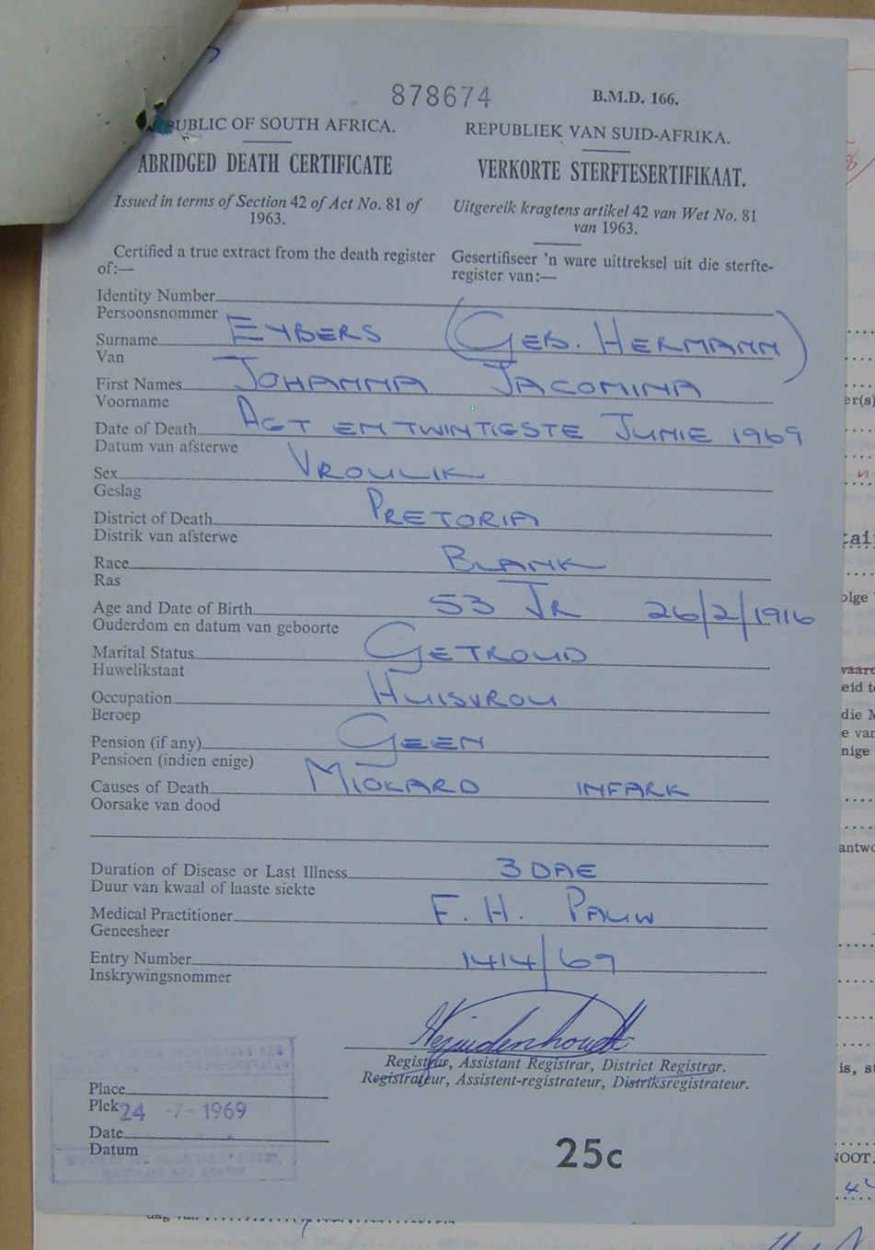 878674
B.M.D. 166.
PUBLIC OF SOUTH AFRICA.
REPUBLIEK VAN SUID-AFRIKA.
ABRIDGED DEATH CERTIFICATE
VERKORTE STERFTESERTIFIKAAT.
Issued in terms of Section 42 of Act No. 81 of
1963.
Uitgereik kragtens artikel 42 van Wet No. 81
van 1963.
Certified a true extract from the death register
of:—
Gesertifiseer 'n ware uittreksel uit die sterfte-
register van:—
Identity Number
Persoonsnommer
Surname EYBERS (GEB. HERMANN)
Van
First Names JOHANNA JACOMINA
Voorname
Date of Death AGT EN TWINTIGSTE JUNIE 1969
Datum van afsterwe
Sex VROULIK
Geslag
District of Death PRETORIA
Distrik van afsterwe
Race BLANK
Ras
Age and Date of Birth 53 JR 26/2/1916
Ouderdom en datum van geboorte
Marital Status GETROUD
Huwelikstaat
Occupation HUISVROU
Beroep
Pension (if any) GEEN
Pensioen (indien enige)
Causes of Death MIOKARD INFARK
Oorsake van dood
Duration of Disease or Last Illness 3 DAE
Duur van kwaal of laaste siekte
Medical Practitioner F. H. PAUW
Geneesheer
Entry Number 1414/69
Inskrywingsnommer
Registrar, Assistant Registrar, District Registrar.
Registrateur, Assistent-registrateur, Distriksregistrateur.
Place
Plek
24 -7- 1969
Date
Datum
25c